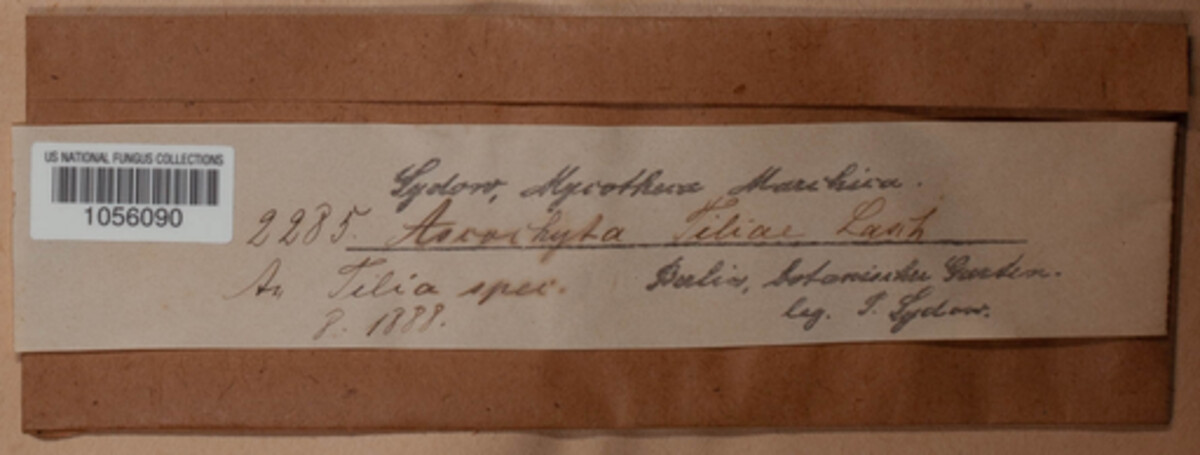 US NATIONAL FUNGUS COLLECTIONS
1056090
Sydow, Mycotheca Marchica.
2285. Ascochyta Tiliae Lasch
An Tilia spec. Berlin, botanischer Garten.
8. 1888. leg. P. Sydow.